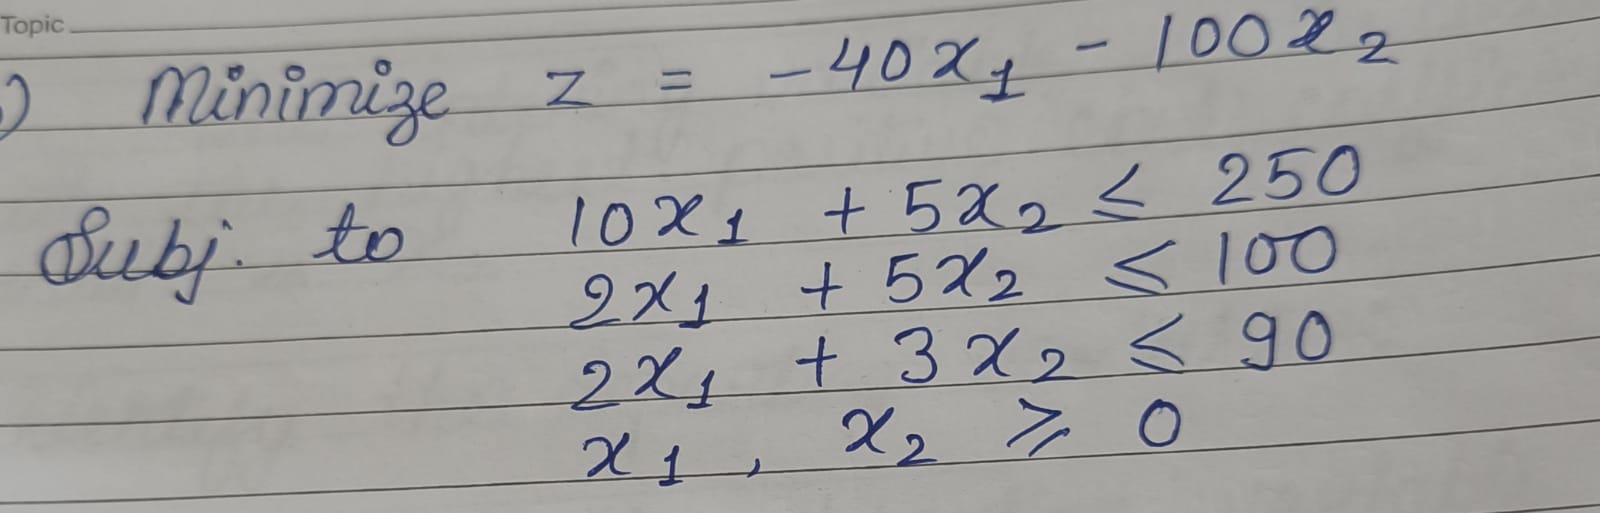 Topic
) Minimize z = -40x₁ - 100x₂
Subj. to 10x₁ + 5x₂ ≤ 250
2x₁ + 5x₂ ≤ 100
2x₁ + 3x₂ ≤ 90
x₁, x₂ ≥ 0